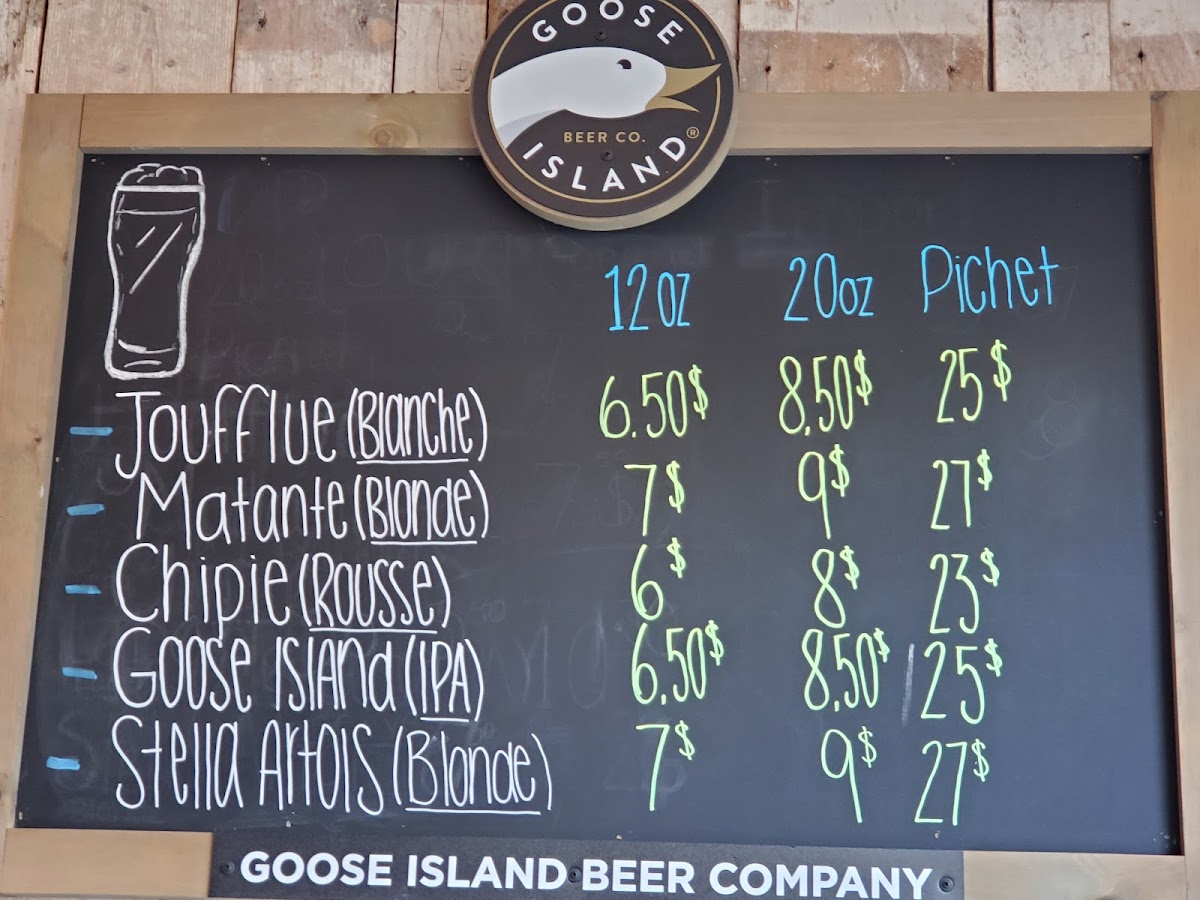 GOOSE
BEER CO.
ISLAND®
12oz 20oz Pichet
Joufflue (Blanche) 6.50$ 8.50$ 25$
Matante (Blonde) 7$ 9$ 27$
Chipie (Rousse) 6$ 8$ 23$
Goose Island (IPA) 6.50$ 8.50$ 25$
Stella Artois (Blonde) 7$ 9$ 27$
GOOSE ISLAND BEER COMPANY